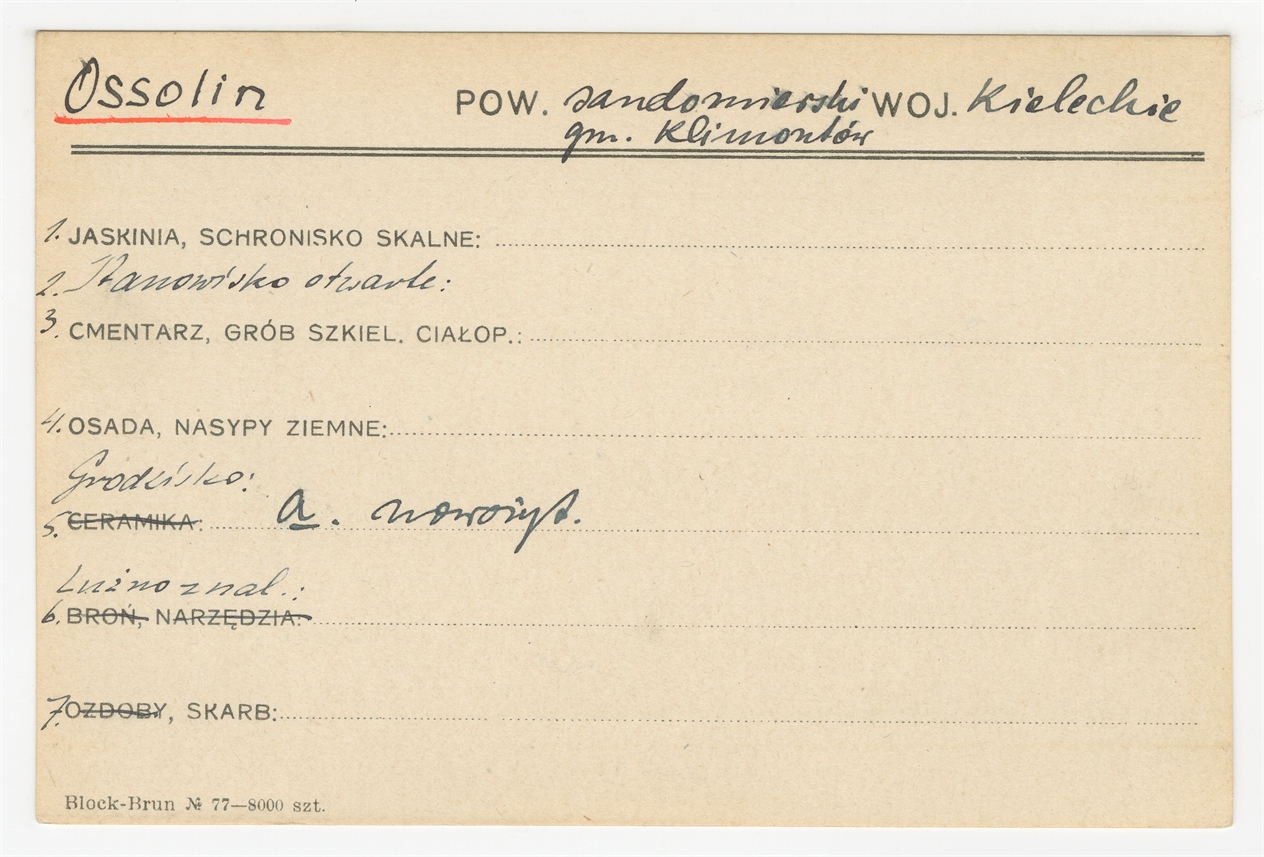 Ossolin POW. sandomierski WOJ. Kieleckie
gm. Klimontów
1. JASKINIA, SCHRONISKO SKALNE:
2. Stanowisko otwarte:
3. CMENTARZ, GRÓB SZKIEL. CIAŁOP.:
4. OSADA, NASYPY ZIEMNE:
Grodzisko:
5. CERAMIKA: a. nowożyt.
Luźno znal.:
6. BROŃ, NARZĘDZIA:
7. OZDOBY, SKARB:
Block-Brun № 77—8000 szt.